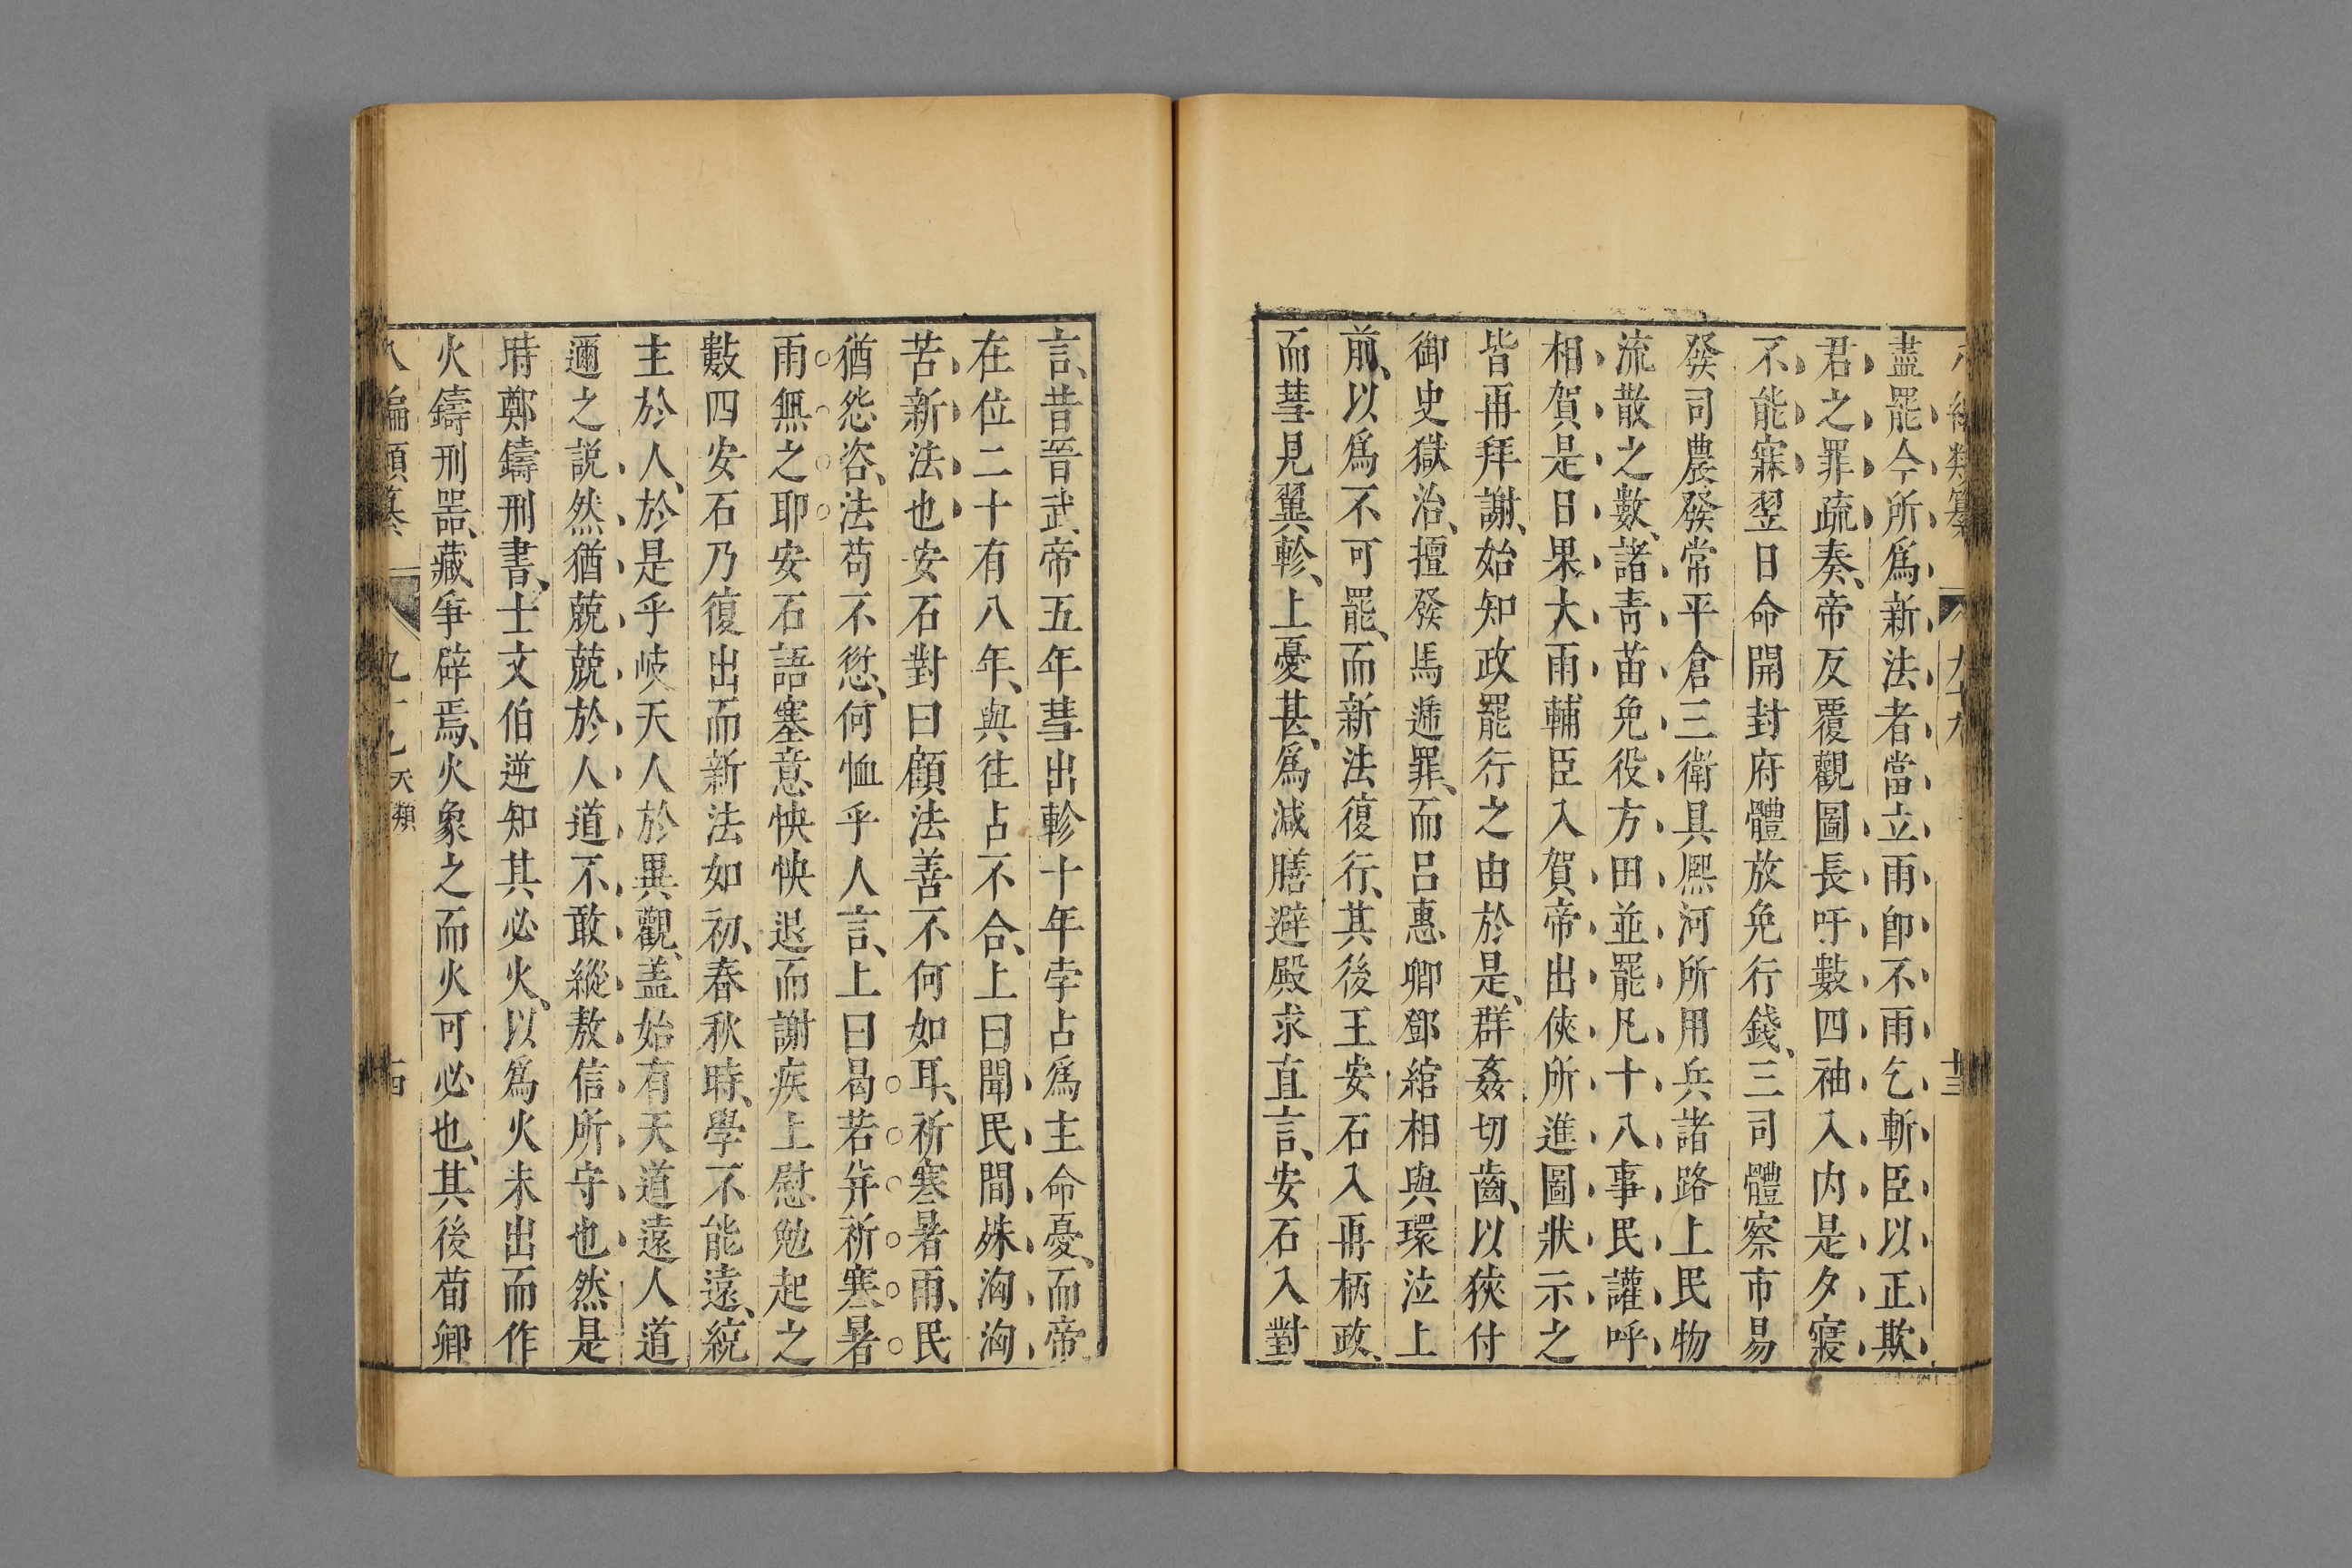 盡罷今所爲新法者當立雨卽不雨乞斬臣以正欺
君之罪疏奏帝反覆觀圖長吁數四袖入内是夕寢
不能寐翌日命開封府體放免行錢三司體察市易
發司農發常平倉三衛具熈河所用兵諸路上民物
流散之數諸靑苗免役方田並罷凡十八事民讙呼
相賀是日果大雨輔臣入賀帝出俠所進圖狀示之
皆再拜謝始知政罷行之由於是群姦切齒以狹付
御史獄治擅發馬遞罪而呂惠卿鄧綰相與環泣上
前以爲不可罷而新法復行其後王安石入再柄政
而彗見翼軫上憂甚爲減膳避殿求直言安石入對
言昔晉武帝五年彗出軫十年孛占爲主命憂而帝
在位二十有八年與往占不合上曰聞民間殊洶洶
苦新法也安石對曰顧法善不何如耳祈寒暑雨民
猶怨咨法苟不愆何恤乎人言上曰曷若幷祈寒暑
雨無之耶安石語塞意怏怏退而謝疾上慰勉起之
數四安石乃復出而新法如初春秋時學不能遠統
主於人於是乎岐天人於異觀盖始有天道遠人道
邇之説然猶兢兢於人道不敢縱敖信所守也然是
時鄭鑄刑書士文伯逆知其必火以爲火未出而作
火鑄刑器藏爭辟焉火象之而火可必也其後荀卿
天類